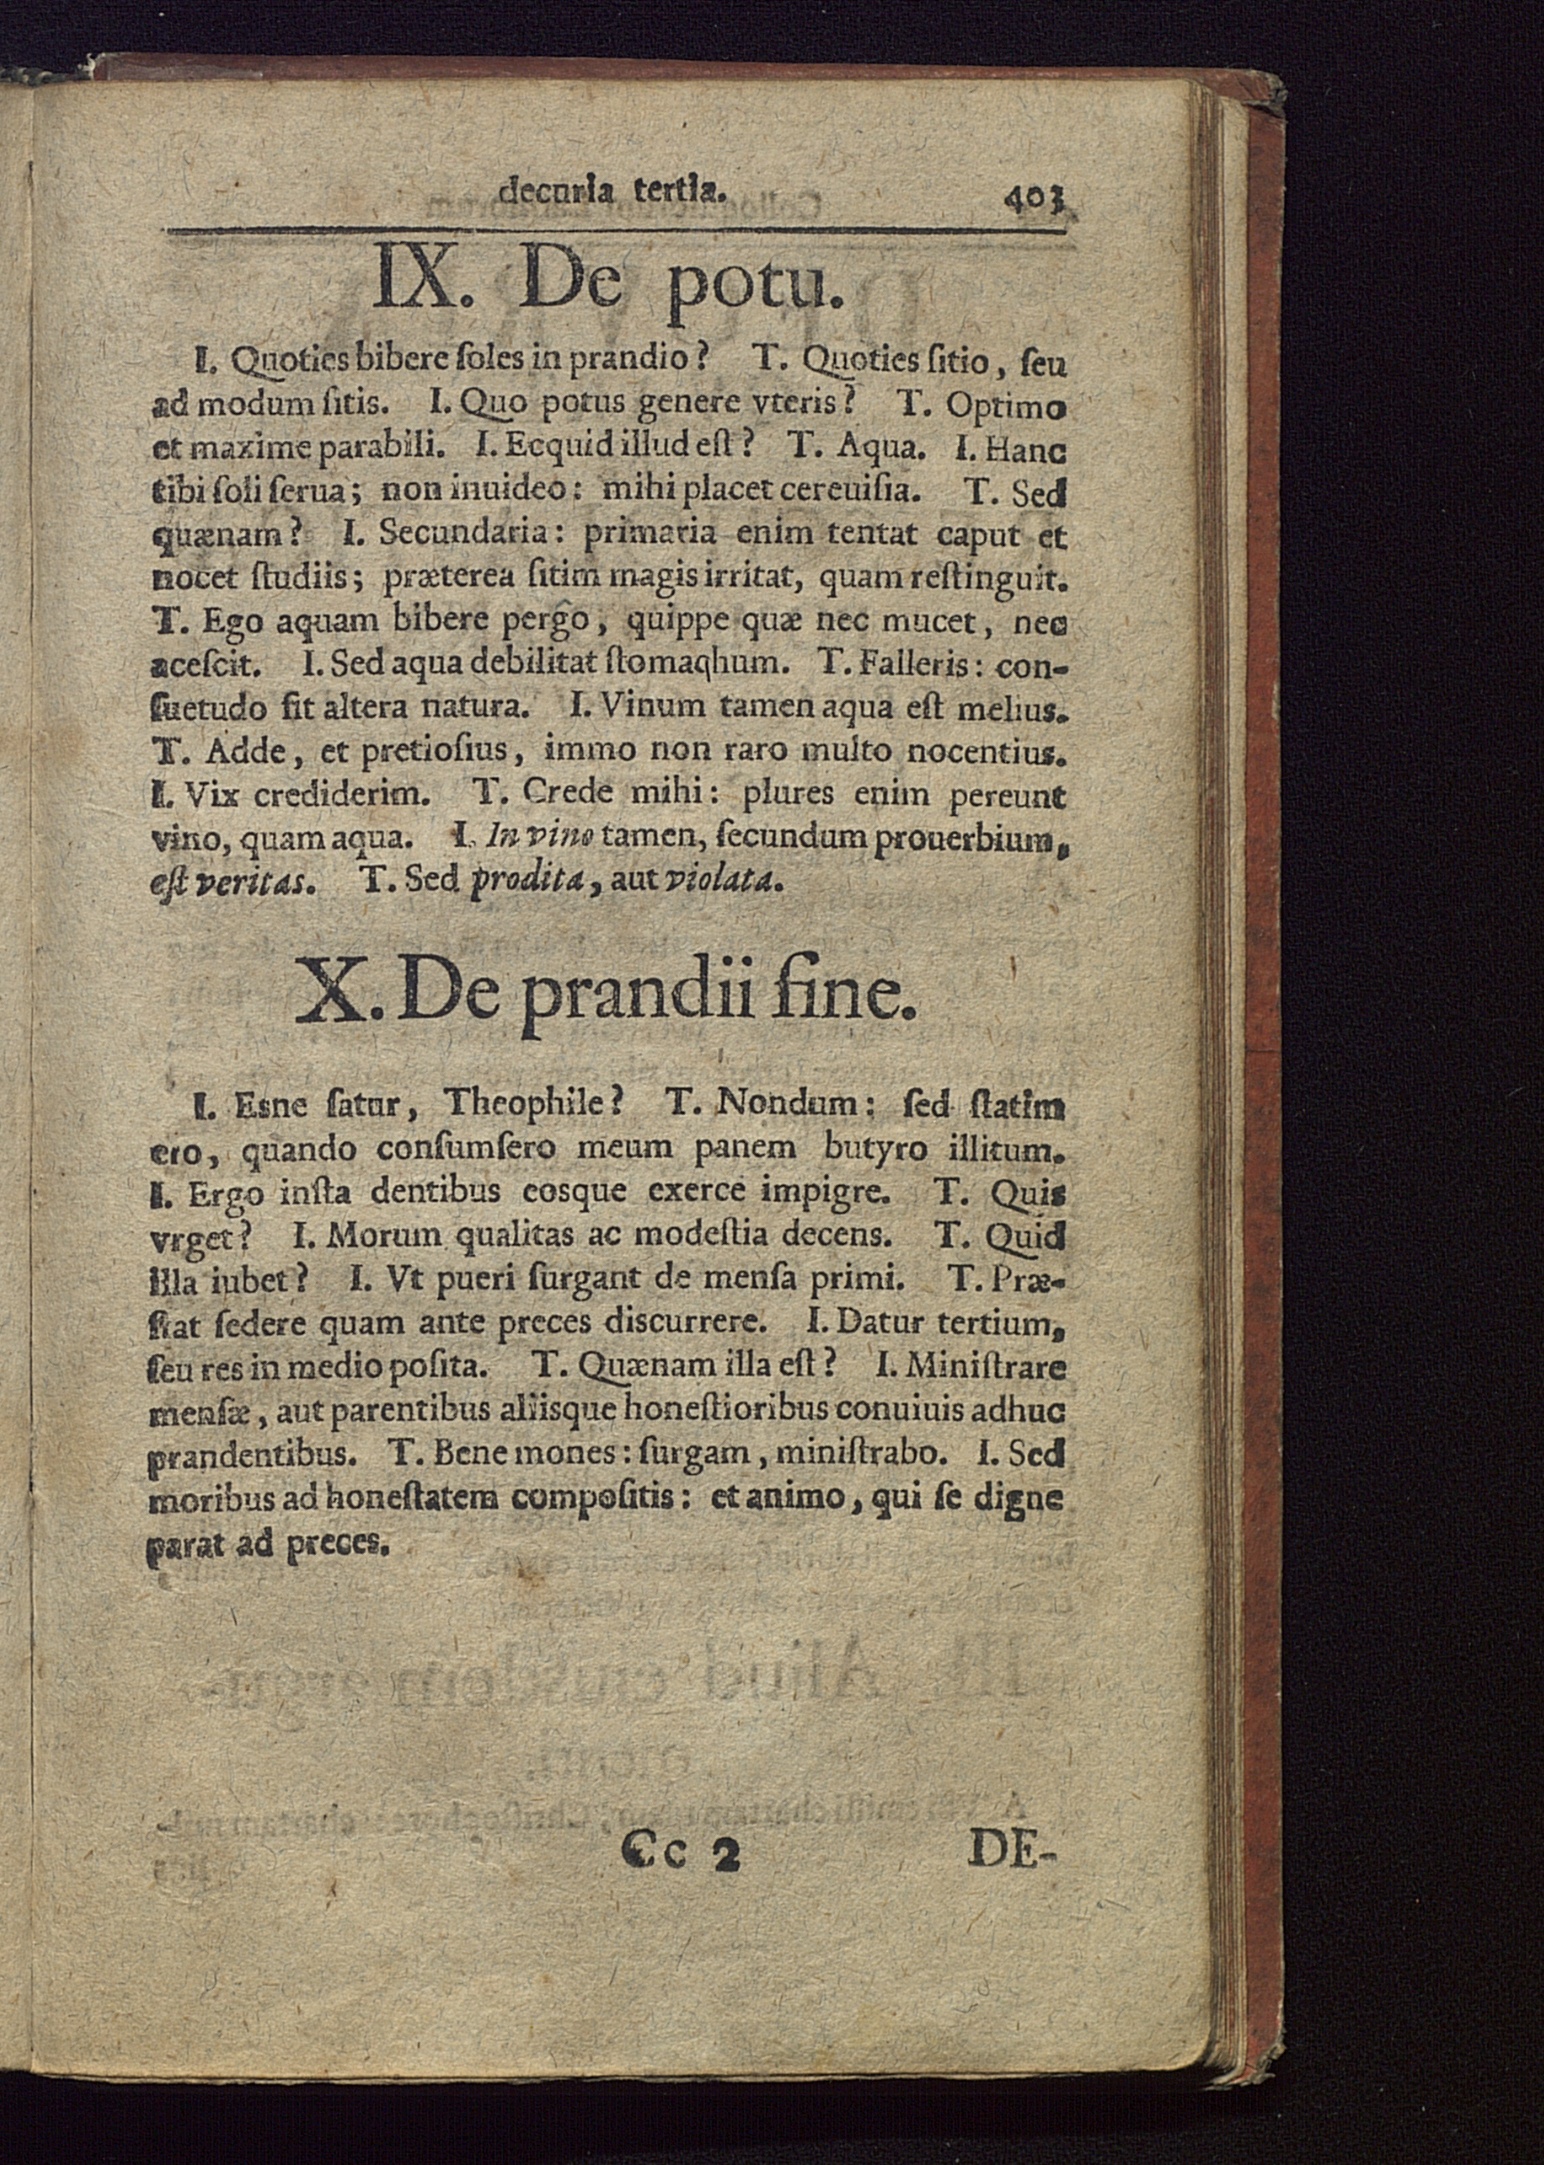 decuria tertia. 403
IX. De potu.
I. Quoties bibere ſoles in prandio? T. Quoties ſitio, ſeu
ad modum ſitis. I. Quo potus genere vteris? T. Optimo
et maxime parabili. I. Ecquid illud eſt? T. Aqua. I. Hanc
tibi ſoli ſerua; non inuideo: mihi placet cereuiſia. T. Sed
quænam? I. Secundaria: primaria enim tentat caput et
nocet ſtudiis; præterea ſitim magis irritat, quam reſtinguit.
T. Ego aquam bibere pergo, quippe quæ nec mucet, nec
aceſcit. I. Sed aqua debilitat ſtomaqhum. T. Falleris: con-
ſuetudo fit altera natura. I. Vinum tamen aqua eſt melius.
T. Adde, et pretioſius, immo non raro multo nocentius.
I. Vix crediderim. T. Crede mihi: plures enim pereunt
vino, quam aqua. I. In vino tamen, ſecundum prouerbium,
eſt veritas. T. Sed prodita, aut violata.
X. De prandii fine.
I. Esne ſatur, Theophile? T. Nondum: ſed ſtatim
ero, quando conſumſero meum panem butyro illitum.
I. Ergo inſta dentibus eosque exerce impigre. T. Quis
vrget? I. Morum qualitas ac modeſtia decens. T. Quid
illa iubet? I. Vt pueri ſurgant de menſa primi. T. Præ-
ſtat ſedere quam ante preces discurrere. I. Datur tertium,
ſeu res in medio poſita. T. Quænam illa eſt? I. Miniſtrare
menſæ, aut parentibus aliisque honeſtioribus conuiuis adhuc
prandentibus. T. Bene mones: ſurgam, miniſtrabo. I. Sed
moribus ad honeſtatem compoſitis: et animo, qui ſe digne
parat ad preces.
Cc 2 DE-